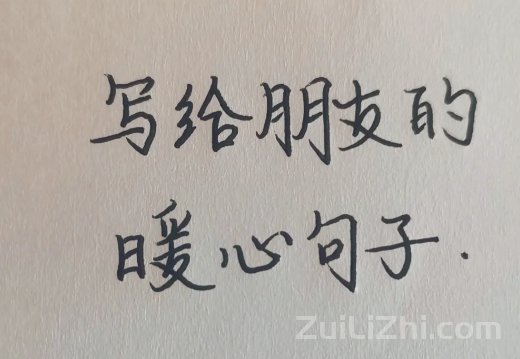 写给朋友的
暖心句子.
ZuiLiZhi.com